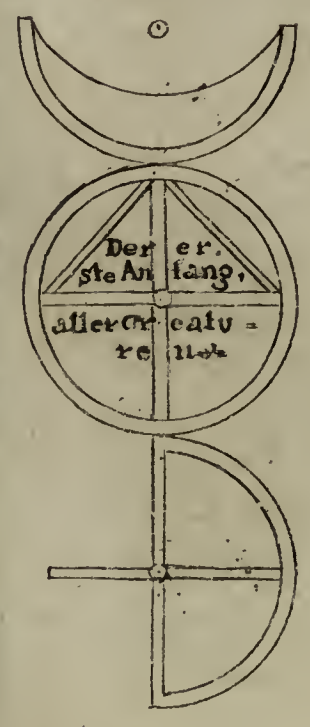 Der er-
ste Anfang,
aller Creatu=
ren